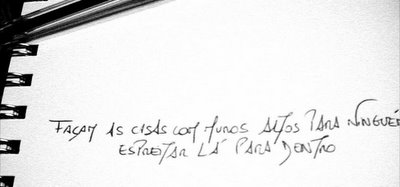 FAÇAM AS CASAS COM MUROS ALTOS PARA NINGUÉM
ESPREITAR LÁ PARA DENTRO